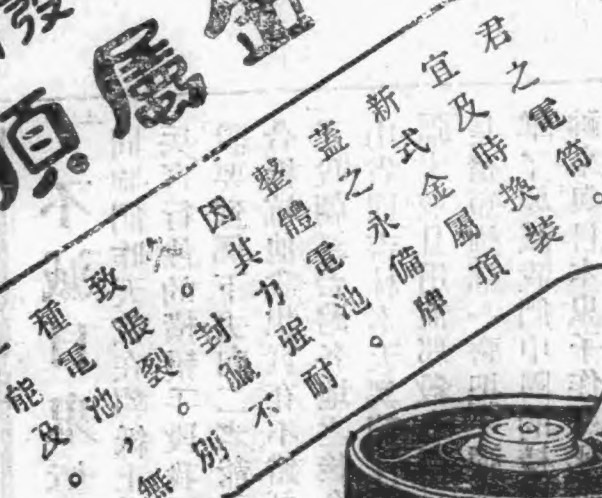 發
金屬頂
君之電筒。
宜及時換裝
新式金屬頂
蓋之永備牌
整體電池。
因其力强耐
久。封臘不
致脹裂。別
種電池，無
一能及。